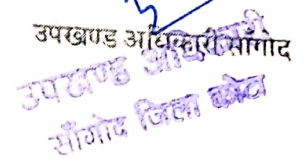 उपखण्ड अधिकारी सॉंगोद
उपखण्ड अधिकारी
सॉंगोद जिला कोटा